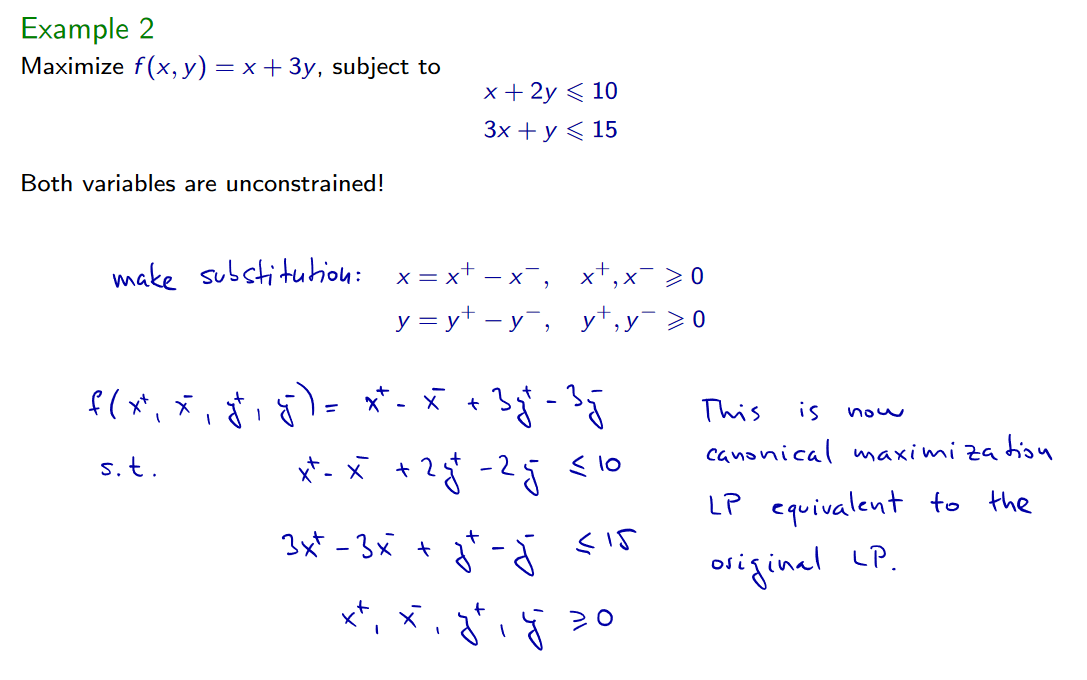 Example 2
Maximize f(x, y) = x + 3y, subject to
x + 2y ⩽ 10
3x + y ⩽ 15
Both variables are unconstrained!
make substitution: x = x⁺ − x⁻, x⁺, x⁻ ⩾ 0
y = y⁺ − y⁻, y⁺, y⁻ ⩾ 0
f(x⁺, x⁻, y⁺, y⁻) = x⁺ - x⁻ + 3y⁺ - 3y⁻
s.t. x⁺ - x⁻ + 2y⁺ - 2y⁻ ≤ 10
3x⁺ - 3x⁻ + y⁺ - y⁻ ≤ 15
x⁺, x⁻, y⁺, y⁻ ⩾ 0
This is now
canonical maximization
LP equivalent to the
original LP.